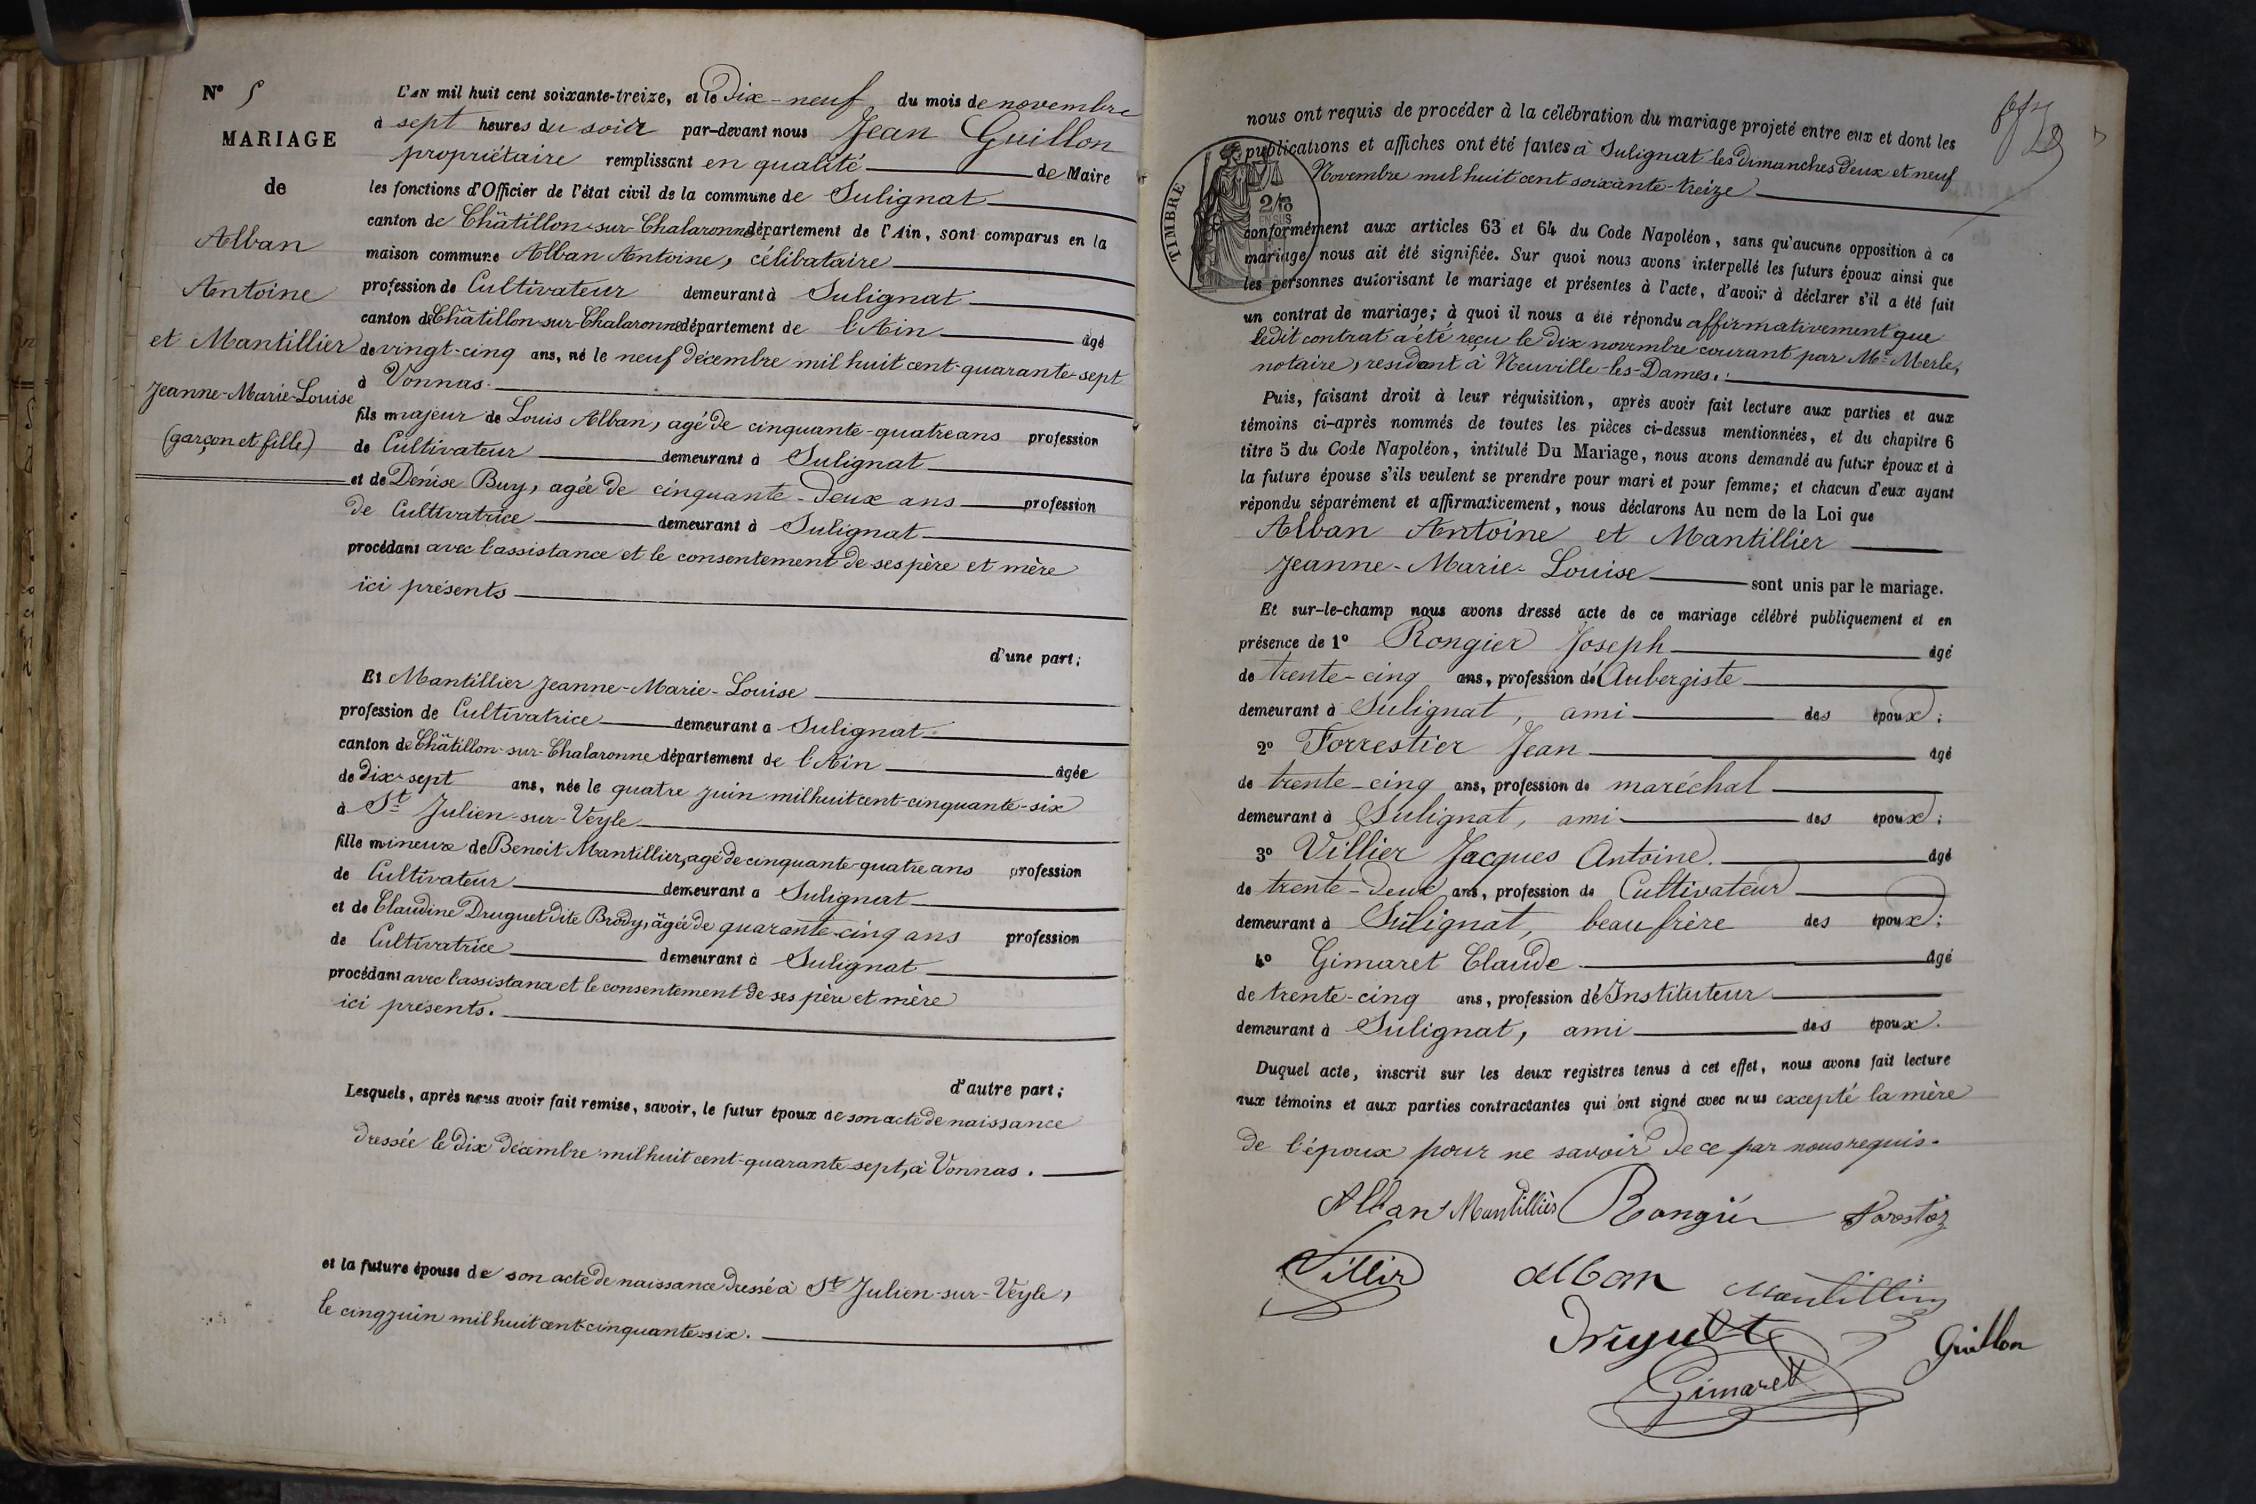 N° 5
MARIAGE
de
Alban
Antoine
et Mantillier
Jeanne-Marie-Louise
(garçon et fille)
L'AN mil huit cent soixante-treize, et le Dix-neuf du mois de novembre
à sept heures du soir par-devant nous Jean Guillon
propriétaire remplissant en qualité de Maire
les fonctions d'Officier de l'état civil de la commune de Sulignat
canton de Châtillon-sur-Chalaronne département de l'Ain, sont comparus en la
maison commune Alban Antoine, célibataire
profession de Cultivateur demeurant à Sulignat
canton de Châtillon-sur-Chalaronne département de l'Ain âgé
de vingt-cinq ans, né le neuf décembre mil huit cent-quarante-sept
à Vonnas.
fils majeur de Louis Alban, agé de cinquante-quatre ans profession
de Cultivateur demeurant à Sulignat
et de Dénise Buy, agée de cinquante-deux ans profession
de Cultivatrice demeurant à Sulignat
procédant avec l'assistance et le consentement de ses père et mère
ici présents
d'une part;
Et Mantillier Jeanne-Marie-Louise
profession de Cultivatrice demeurant à Sulignat
canton de Châtillon-sur-Chalaronne département de l'Ain âgée
de dix-sept ans, née le quatre juin mil huit cent-cinquante-six
à St Julien-sur-Veyle
fille mineure de Benoit Mantillier, agé de cinquante-quatre ans profession
de Cultivateur demeurant à Sulignat
et de Claudine Druguet dite Brody, âgée de quarante-cinq ans profession
de Cultivatrice demeurant à Sulignat
procédant avec l'assistance et le consentement de ses père et mère
ici présents.
d'autre part;
Lesquels, après nous avoir fait remise, savoir, le futur époux de son acte de naissance
dressée le dix décembre mil huit cent-quarante-sept, à Vonnas.
et la future épouse de son acte de naissance dressé à St Julien-sur-Veyle,
le cinq juin mil huit cent-cinquante-six.
nous ont requis de procéder à la célébration du mariage projeté entre eux et dont les
publications et affiches ont été faites à Sulignat les dimanches deux et neuf
Novembre mil huit cent soixante-treize
TIMBRE
2/10
EN SUS
conformément aux articles 63 et 64 du Code Napoléon, sans qu'aucune opposition à ce
mariage nous ait été signifiée. Sur quoi nous avons interpellé les futurs époux ainsi que
les personnes autorisant le mariage et présentes à l'acte, d'avoir à déclarer s'il a été fait
un contrat de mariage; à quoi il nous a été répondu affirmativement que
ledit contrat a été reçu le dix novembre courant par Me Merle,
notaire, résidant à Neuville-les-Dames.
Puis, faisant droit à leur réquisition, après avoir fait lecture aux parties et aux
témoins ci-après nommés de toutes les pièces ci-dessus mentionnées, et du chapitre 6
titre 5 du Code Napoléon, intitulé Du Mariage, nous avons demandé au futur époux et à
la future épouse s'ils veulent se prendre pour mari et pour femme; et chacun d'eux ayant
répondu séparément et affirmativement, nous déclarons Au nom de la Loi que
Alban Antoine et Mantillier
Jeanne-Marie-Louise sont unis par le mariage.
Et sur-le-champ nous avons dressé acte de ce mariage célébré publiquement et en
présence de 1° Rongier Joseph âgé
de trente-cinq ans, profession d'Aubergiste
demeurant à Sulignat, ami des époux;
2° Forrestier Jean âgé
de trente-cinq ans, profession de maréchal
demeurant à Sulignat, ami des époux;
3° Villier Jacques Antoine. âgé
de trente-deux ans, profession de Cultivateur
demeurant à Sulignat, beau frère des époux;
4° Gimaret Claude âgé
de trente-cinq ans, profession d'Instituteur
demeurant à Sulignat, ami des époux.
Duquel acte, inscrit sur les deux registres tenus à cet effet, nous avons fait lecture
aux témoins et aux parties contractantes qui ont signé avec nous excepté la mère
de l'époux pour ne savoir de ce par nous requis.
Alban Mantillier Rongier Forestier
Villier Alban Mantillier
Druguet Guillon
Gimaret